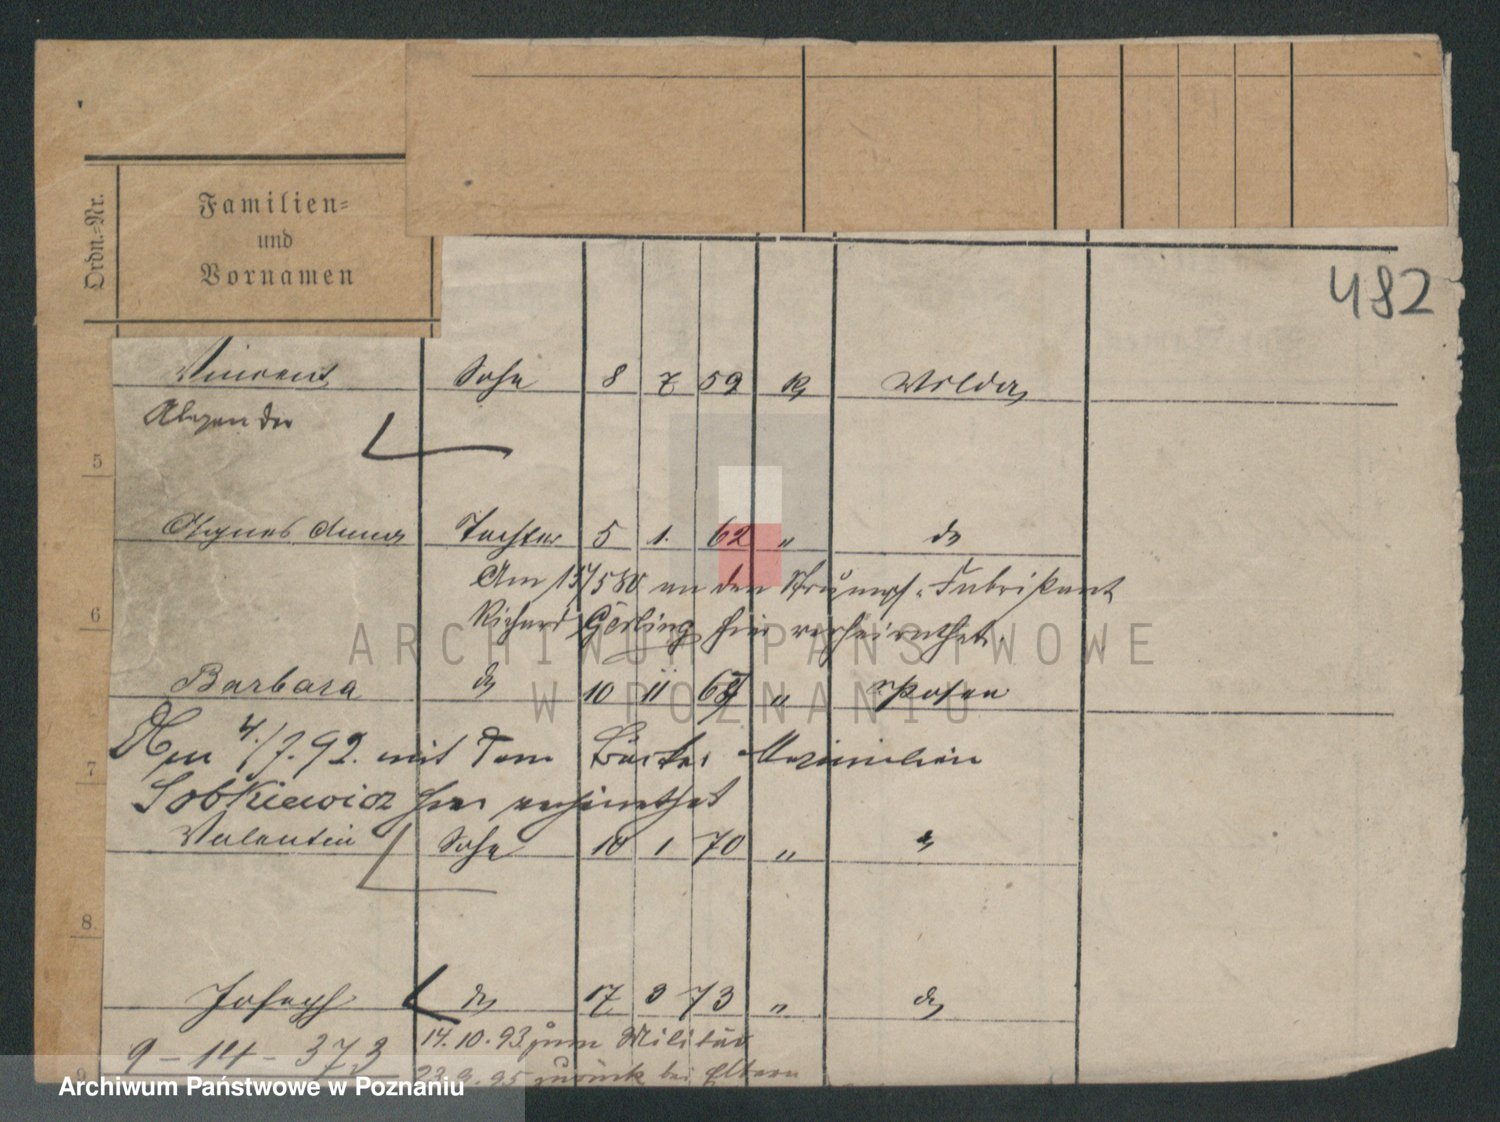 Ordn.-Nr.
Familien-
und
Vornamen
482
Vincent Sohn 8 7 59 k Wilda
Alexander
5
Agnes Anna Tochter 5 1. 62 " do
Am 15/5 80 an den Strumpf-Fabrikant
6
Richard Görling hier verheirathet.
ARCHIWUM PAŃSTWOWE
W POZNANIU
Barbara do 10 11 " Posen
4./7. 92. mit dem Maximilian
7
Sobkiewicz hier verheirathet
Valentin Sohn 10 1 70 " "
8
Joseph do 17 3 73 " do
14. 10. 93. zum Militär
9 - 14 - 373
9
23. 9. 95 zurück bei Eltern
Archiwum Państwowe w Poznaniu